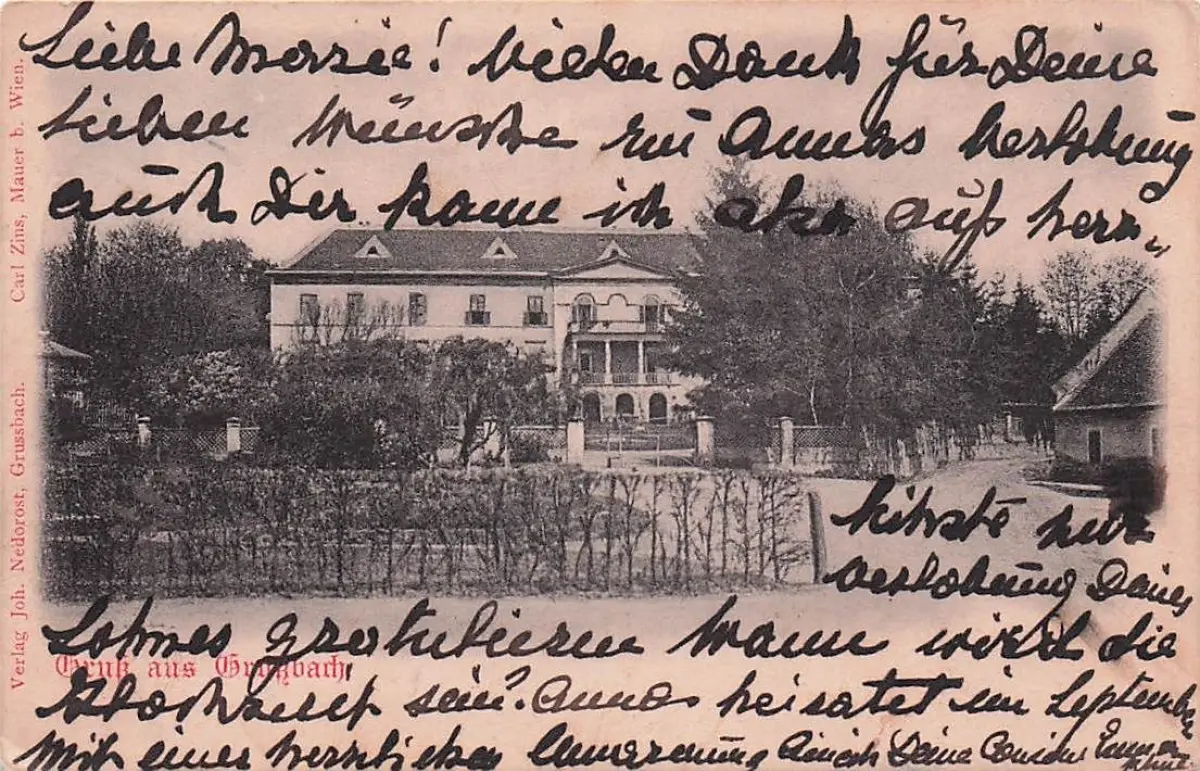 Liebe Marie! Vielen Dank für Deine
lieben Wünsche zu Annas Verlobung
auch Dir kann ich aber auf herz-
lichste zur
Verlobung Deines
Sohnes gratulieren Wann wird die
Hochzeit sein? Anna heiratet im September
Mit einer herzlichen Umarmung Deine
Gruß aus Grußbach.
Verlag Joh. Nedorost, Grussbach.
Carl Zins, Mauer b. Wien.